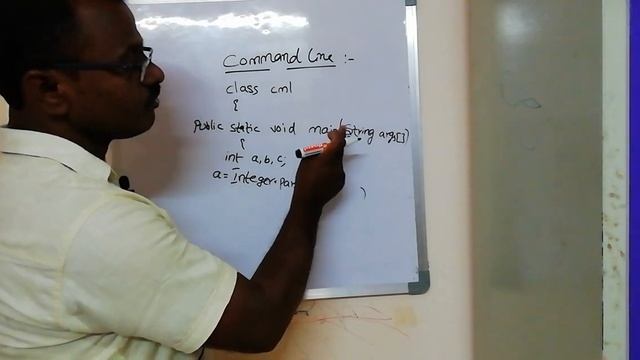 Command Line :-
class cml
{
Public static void main(String args[])
{
int a,b,c;
a = Integer.par
)